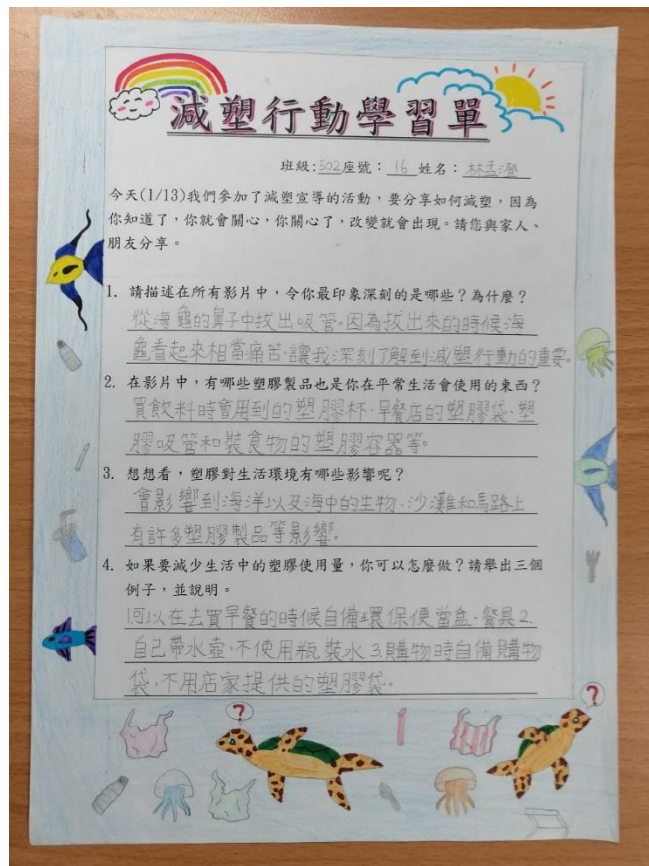 減塑行動學習單
班級:502座號：16姓名：林孟澄
今天(1/13)我們參加了減塑宣導的活動，要分享如何減塑，因為
你知道了，你就會關心，你關心了，改變就會出現。請您與家人、
朋友分享。
1. 請描述在所有影片中，令你最印象深刻的是哪些？為什麼？
從海龜的鼻子中拔出吸管。因為拔出來的時候海
龜看起來相當痛苦，讓我深刻了解到減塑行動的重要。
2. 在影片中，有哪些塑膠製品也是你在平常生活會使用的東西？
買飲料時會用到的塑膠杯、早餐店的塑膠袋、塑
膠吸管和裝食物的塑膠容器等。
3. 想想看，塑膠對生活環境有哪些影響呢？
會影響到海洋以及海中的生物、沙灘和馬路上
有許多塑膠製品等影響。
4. 如果要減少生活中的塑膠使用量，你可以怎麼做？請舉出三個
例子，並說明。
1.可以在去買早餐的時候自備環保便當盒、餐具2.
自己帶水壺，不使用瓶裝水3.購物時自備購物
袋，不用店家提供的塑膠袋。
?
?